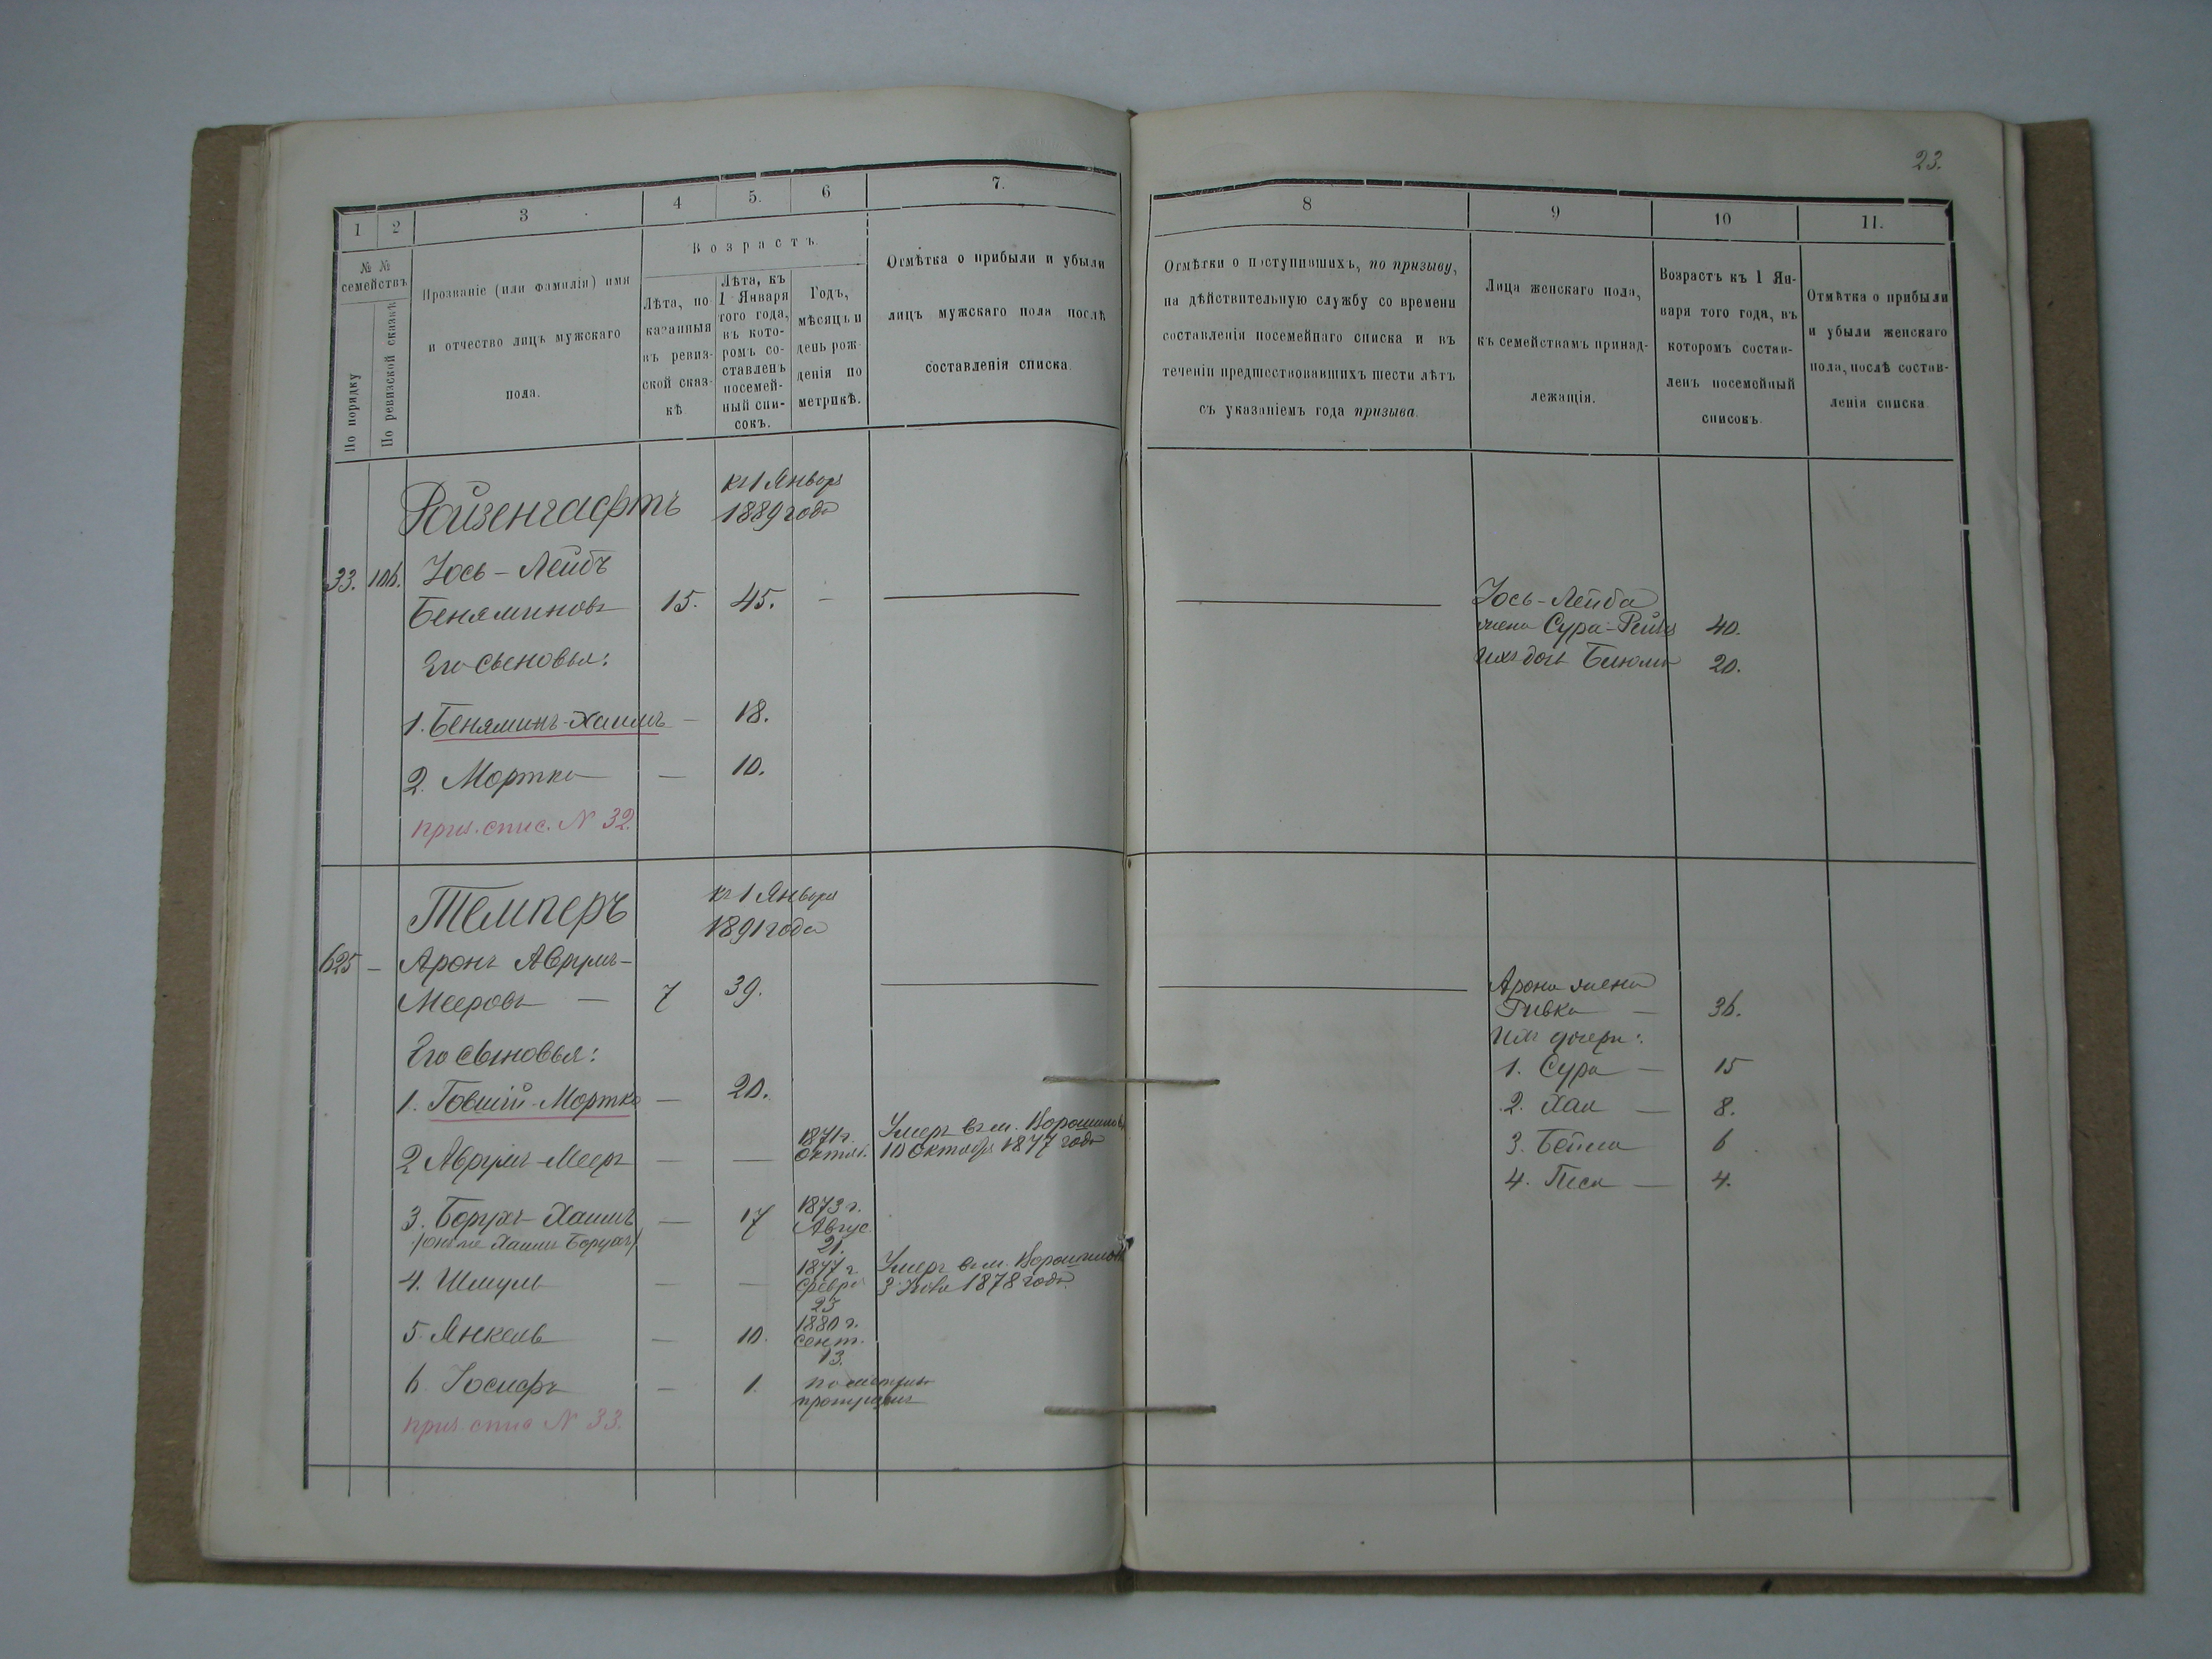 23.
1 2 3 4 5. 6 7.
№ № семействъ
По порядку
По ревизской сказкѣ
Прозваніе (или фамилія) имя
и отчество лицъ мужскаго
пола.
Возрастъ.
Лѣта, по
казанныя
въ ревиз-
ской сказ-
кѣ
Лѣта, къ
1 Января
того года,
въ кото-
ромъ со-
ставленъ
посемей-
ный спи-
сокъ.
Годъ,
мѣсяцъ и
день рож-
денія по
метрикѣ.
Отмѣтка о прибыли и убыли
лицъ мужскаго пола послѣ
составленія списка.
8 9 10 11.
Отмѣтки о поступившихъ, по призыву,
на дѣйствительную службу со времени
составленія посемейнаго списка и въ
теченіи предшествовавшихъ шести лѣтъ
съ указаніемъ года призыва.
Лица женскаго пола,
къ семействамъ принад-
лежащія.
Возрастъ къ 1 Ян-
варя того года, въ
которомъ состав-
ленъ посемейный
списокъ.
Отмѣтка о прибыли
и убыли женскаго
пола, послѣ состав-
ленія списка.
Ройзенгафтъ
къ 1 Января
1889 года
33. 106. Іось-Лейбъ
Беняминовъ 15. 45. —
Его сыновья:
1. Беняминъ-Хаимъ — 18.
2. Мортко — 10.
приз. спис. N 32.
Іось-Лейба
жена Сура-Рейза 40.
Ихъ дочь 20.
Темперъ
къ 1 Января
1891 года
625 — Аронъ Аврумъ-
Мееровъ — 7 39.
Его сыновья:
1. Говшій-Мортко — 20.
2 Аврумъ-Мееръ — — 1871 г.
Октяб.
Умеръ въ м.
10 Октября 1877 года
3. Борухъ-Хаимъ — 17 1873 г.
Авгус.
21.
(онъ же Хаимъ Борухъ)
4. Шмуль — — 1877 г.
Февра
23
Умеръ въ м.
3 1878 года.
5. Янкель — 10. 1880 г.
Сент.
13.
6. Іосифъ — 1. по метрик
приз. спис N 33.
Арона жена
Ривка — 36.
Ихъ дочери:
1. Сура — 15
2. Хая — 8.
3. Бейла 6
4. Песя — 4.